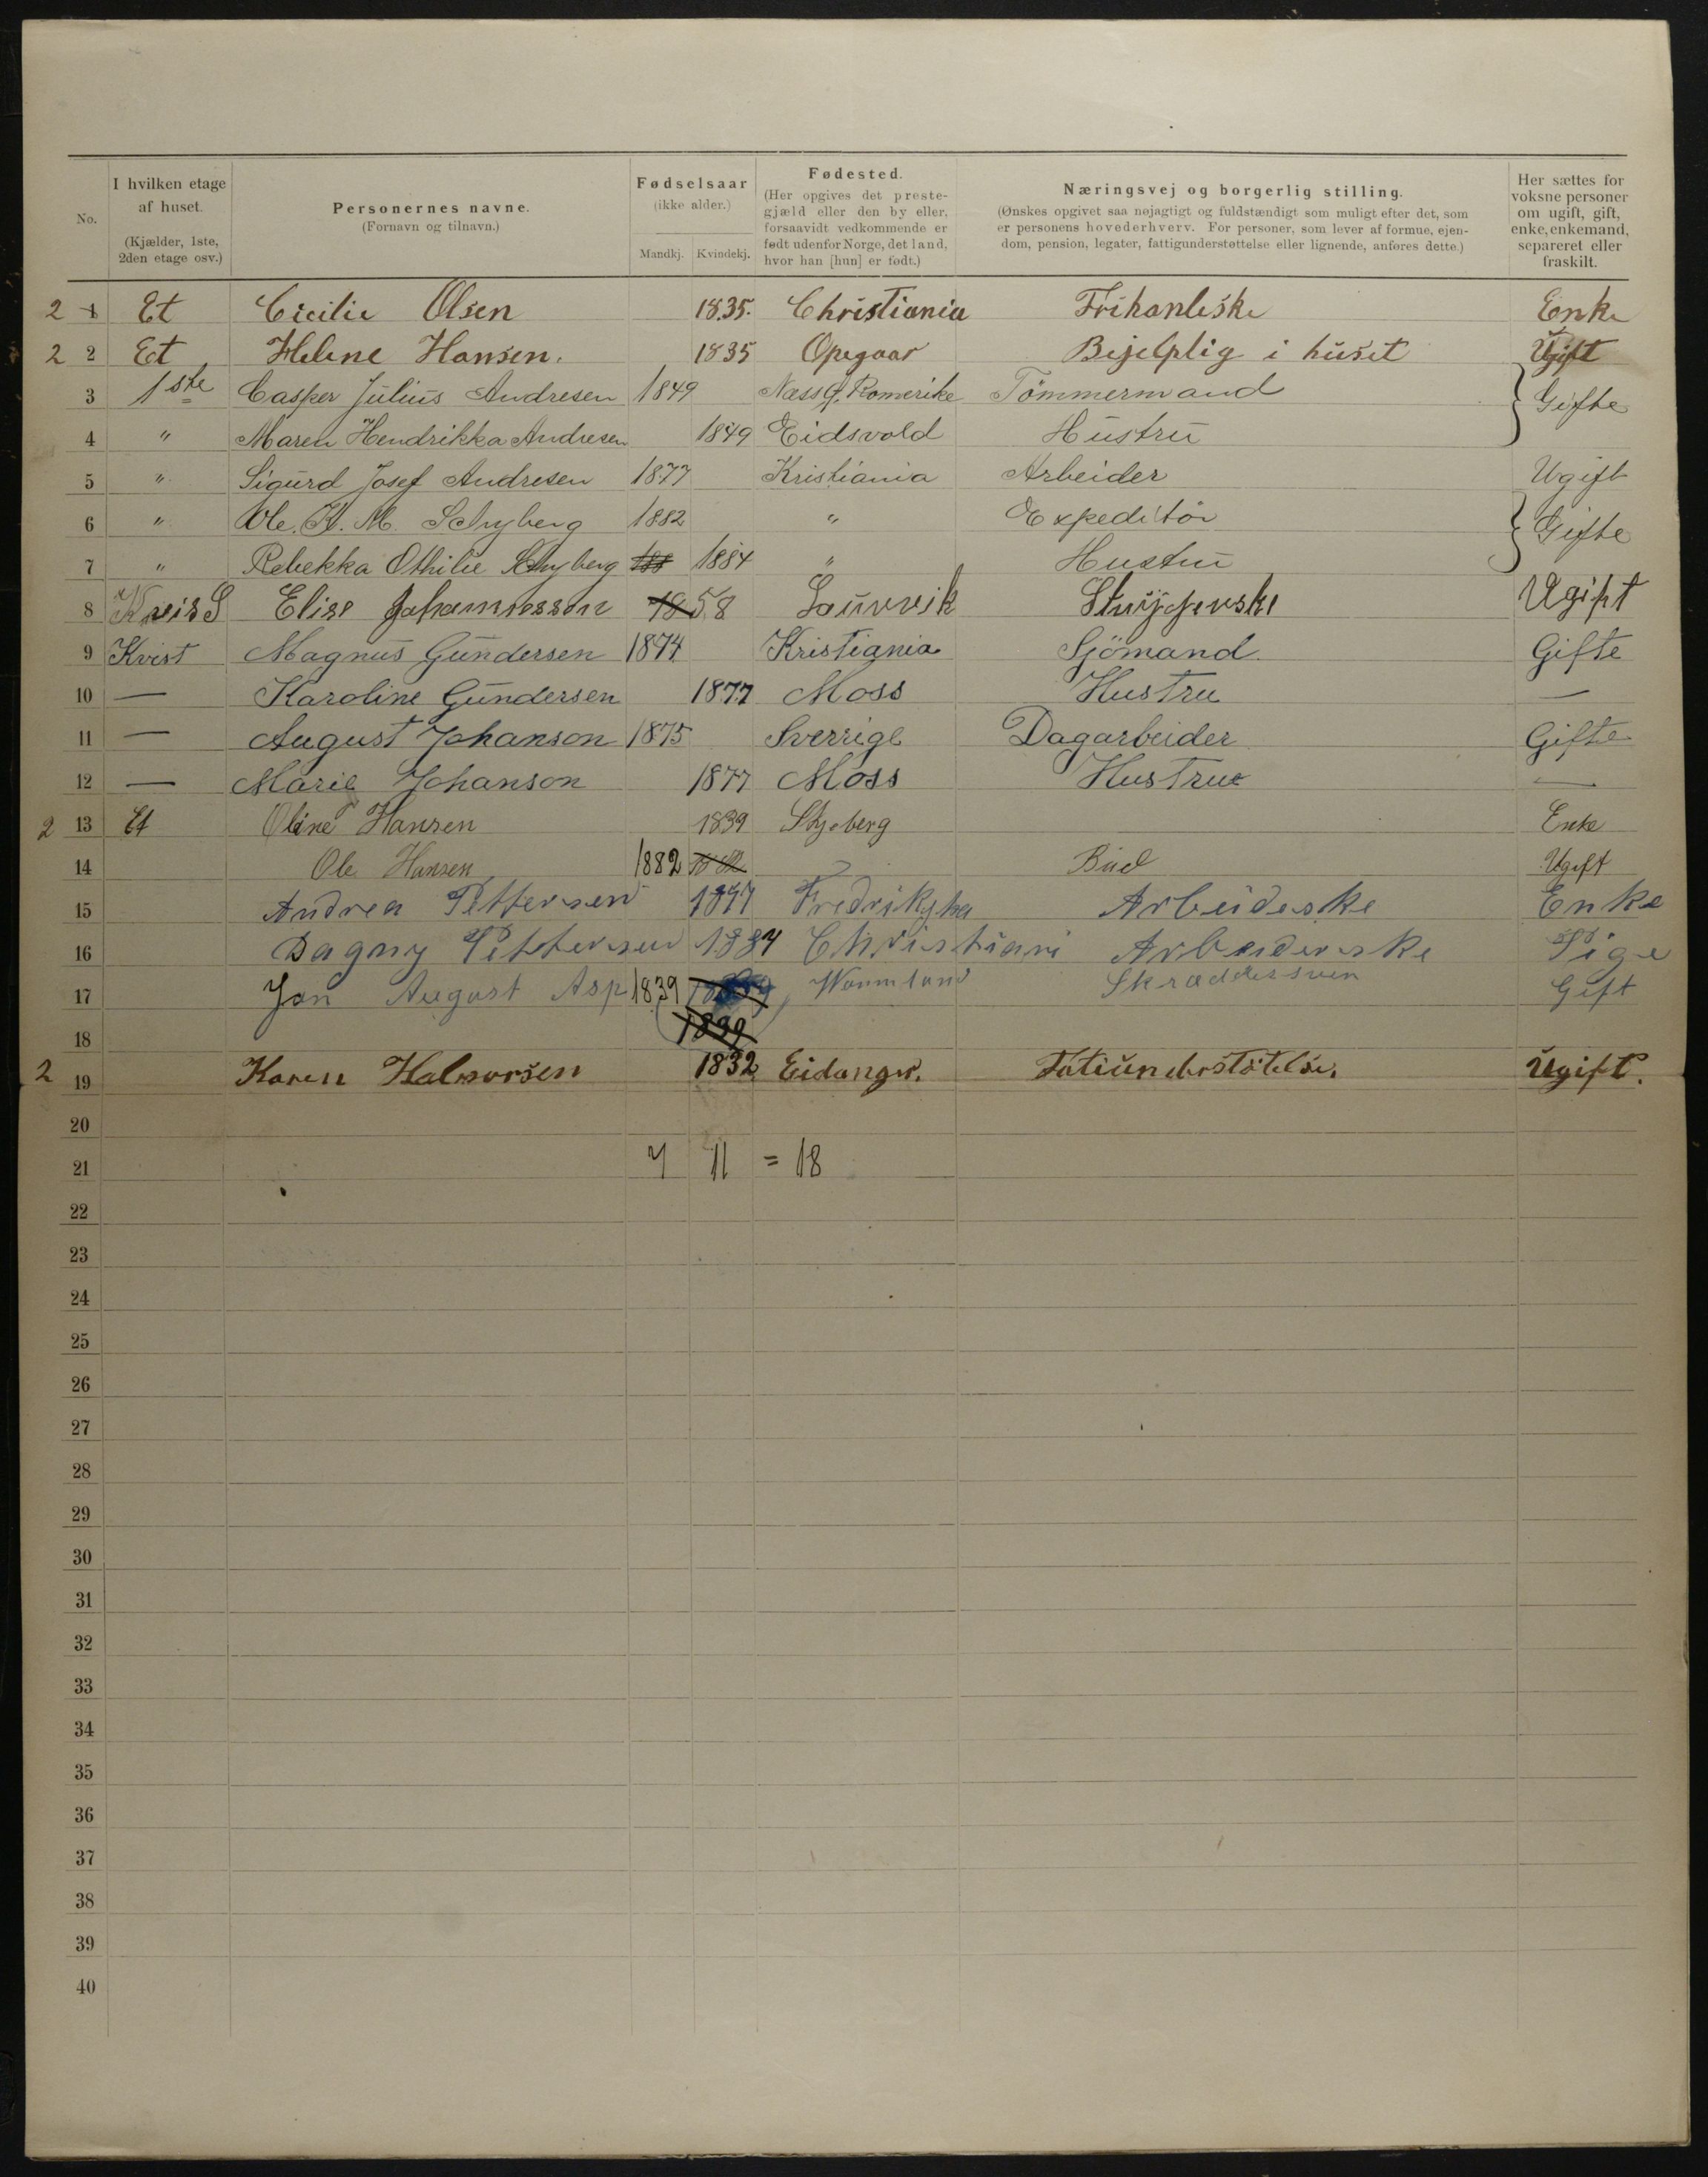 No. I hvilken etage af huset. (Kjælder, 1ste, 2den etage osv.) Personernes navne. (Fornavn og tilnavn.) Fødselsaar (ikke alder.) Mandkj. Kvindekj. Fødested. (Her opgives det prestegjæld eller den by eller, forsaavidt vedkommende er født udenfor Norge, det land, hvor han [hun] er født.) Næringsvej og borgerlig stilling. (Ønskes opgivet saa nøjagtigt og fuldstændigt som muligt efter det, som er personens hovederhverv. For personer, som lever af formue, ejendom, pension, legater, fattigunderstøttelse eller lignende, anføres dette.) Her sættes for voksne personer om ugift, gift, enke, enkemand, separeret eller fraskilt.
2 1 Et Cicilie Olsen 1835. Christiania Frihanleske Enke
2 2 Et Helene Hansen. 1835 Opegaar Bejelplig i huset Ugift
3 1ste Casper Julius Andresen 1849 Næss Romerike Tömmermand Gifte
4 " Maren Hendrikka Andresen 1849 Eidsvold Hustru
5 " Sigurd Josef Andresen 1877 Kristiania Arbeider Ugift
6 " Ole. H. M. Schyberg 1882 " Expeditör Gifte
7 " Rebekka Othilie Schyberg 188 1884 " Hustru
8 Elise Johannessen 1858 Laurvik Ugift
9 Kvist Magnus Gundersen 1874 Kristiania Sjömand. Gifte
10 — Karoline Gundersen 1877 Moss Hustru —
11 — August Johanson 1875 Sverrige Dagarbeider Gifte
12 — Marie Johanson 1877 Moss Hustrue —
2 13 Et Oline Hansen 1839 Skjeberg Enke
14 Ole Hansen 1882 Bud Ugift
15 Andrea Pettersen Fredriksha Arbeideske Enke
16 Dagny Pettersen 1884 Christiani Arbeiderske Pige
17 Jon August Asp 1839 Warmland Skræddersven Gift
18 1839
2 19 Karen Halvorsen 1832 Eidanger. Fatiunderstötelse. Ugift.
20
21 7 11 = 18
22
23
24
25
26
27
28
29
30
31
32
33
34
35
36
37
38
39
40